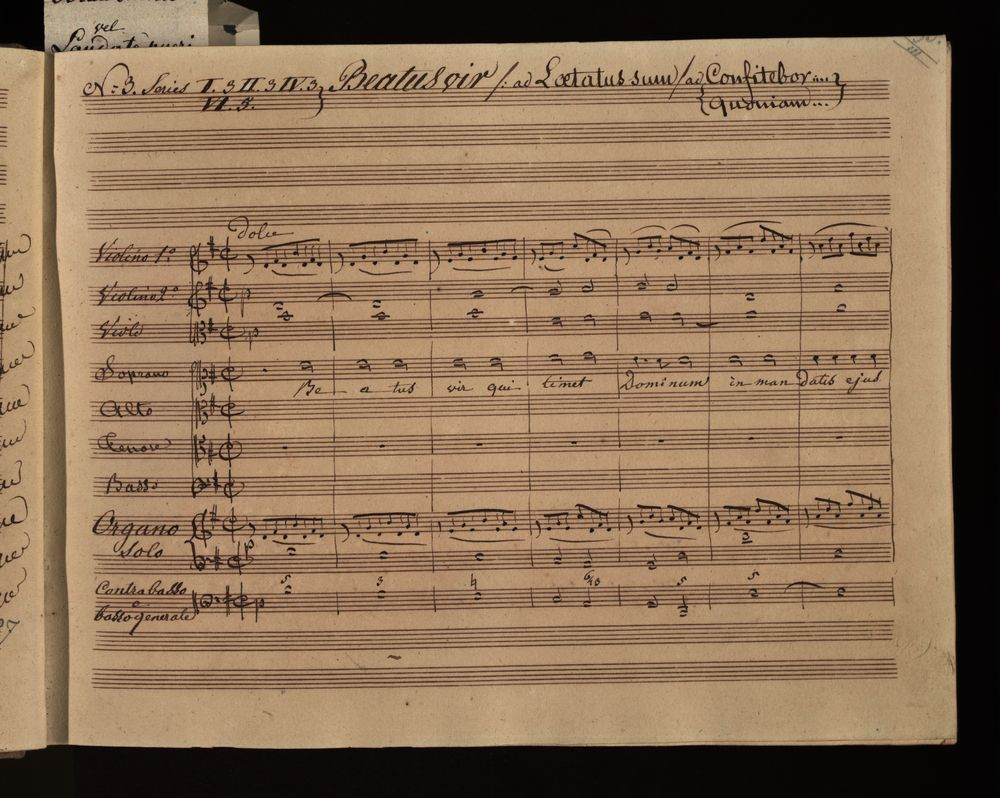 vel
N:3. Series I. 3 II. 3 IV. 3 } Beatus vir /: ad Lætatus sum / ad Confitebor ... }
VI. 3. { Quoniam ... }
dolce
Violino 1º
Violino 2º
p
Viola
p
Soprano
Be a tus vir qui timet Dominum in man datis ejus
Alto
Tenore
Basso
Organo
Solo
p
5 3 4 6 5 5
Contrabasso
e
basso generale
p